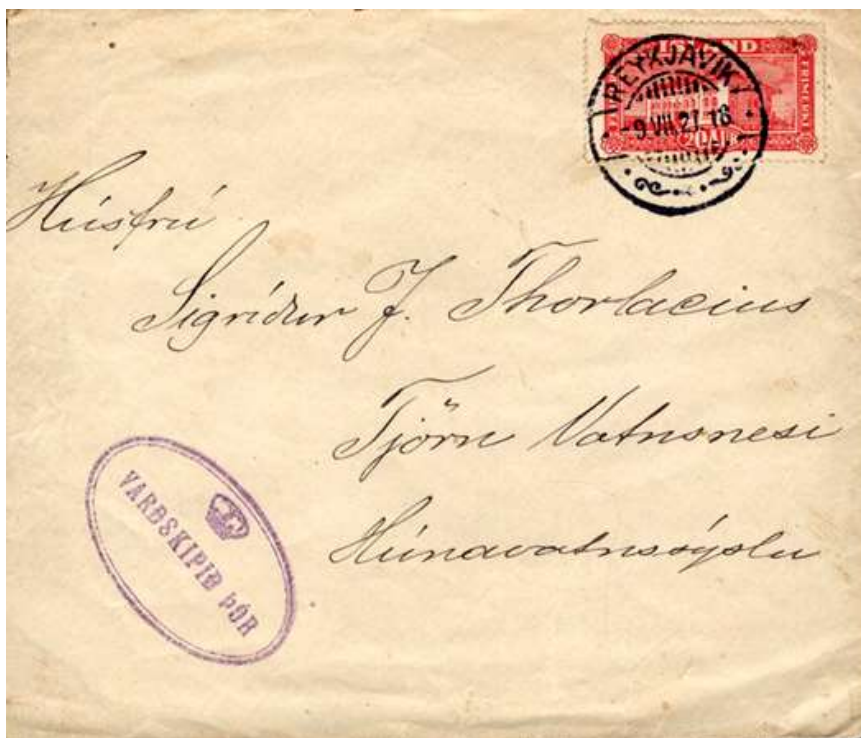 ISLAND
FRIMERKI
20 AUR
REYKJAVIK
-9.VII.27.18
Húsfrú
Sigríður J. Thorlacius
Tjörn Vatnsnesi
Húnavatnssýslu
VARÐSKIPIÐ ÞÓR